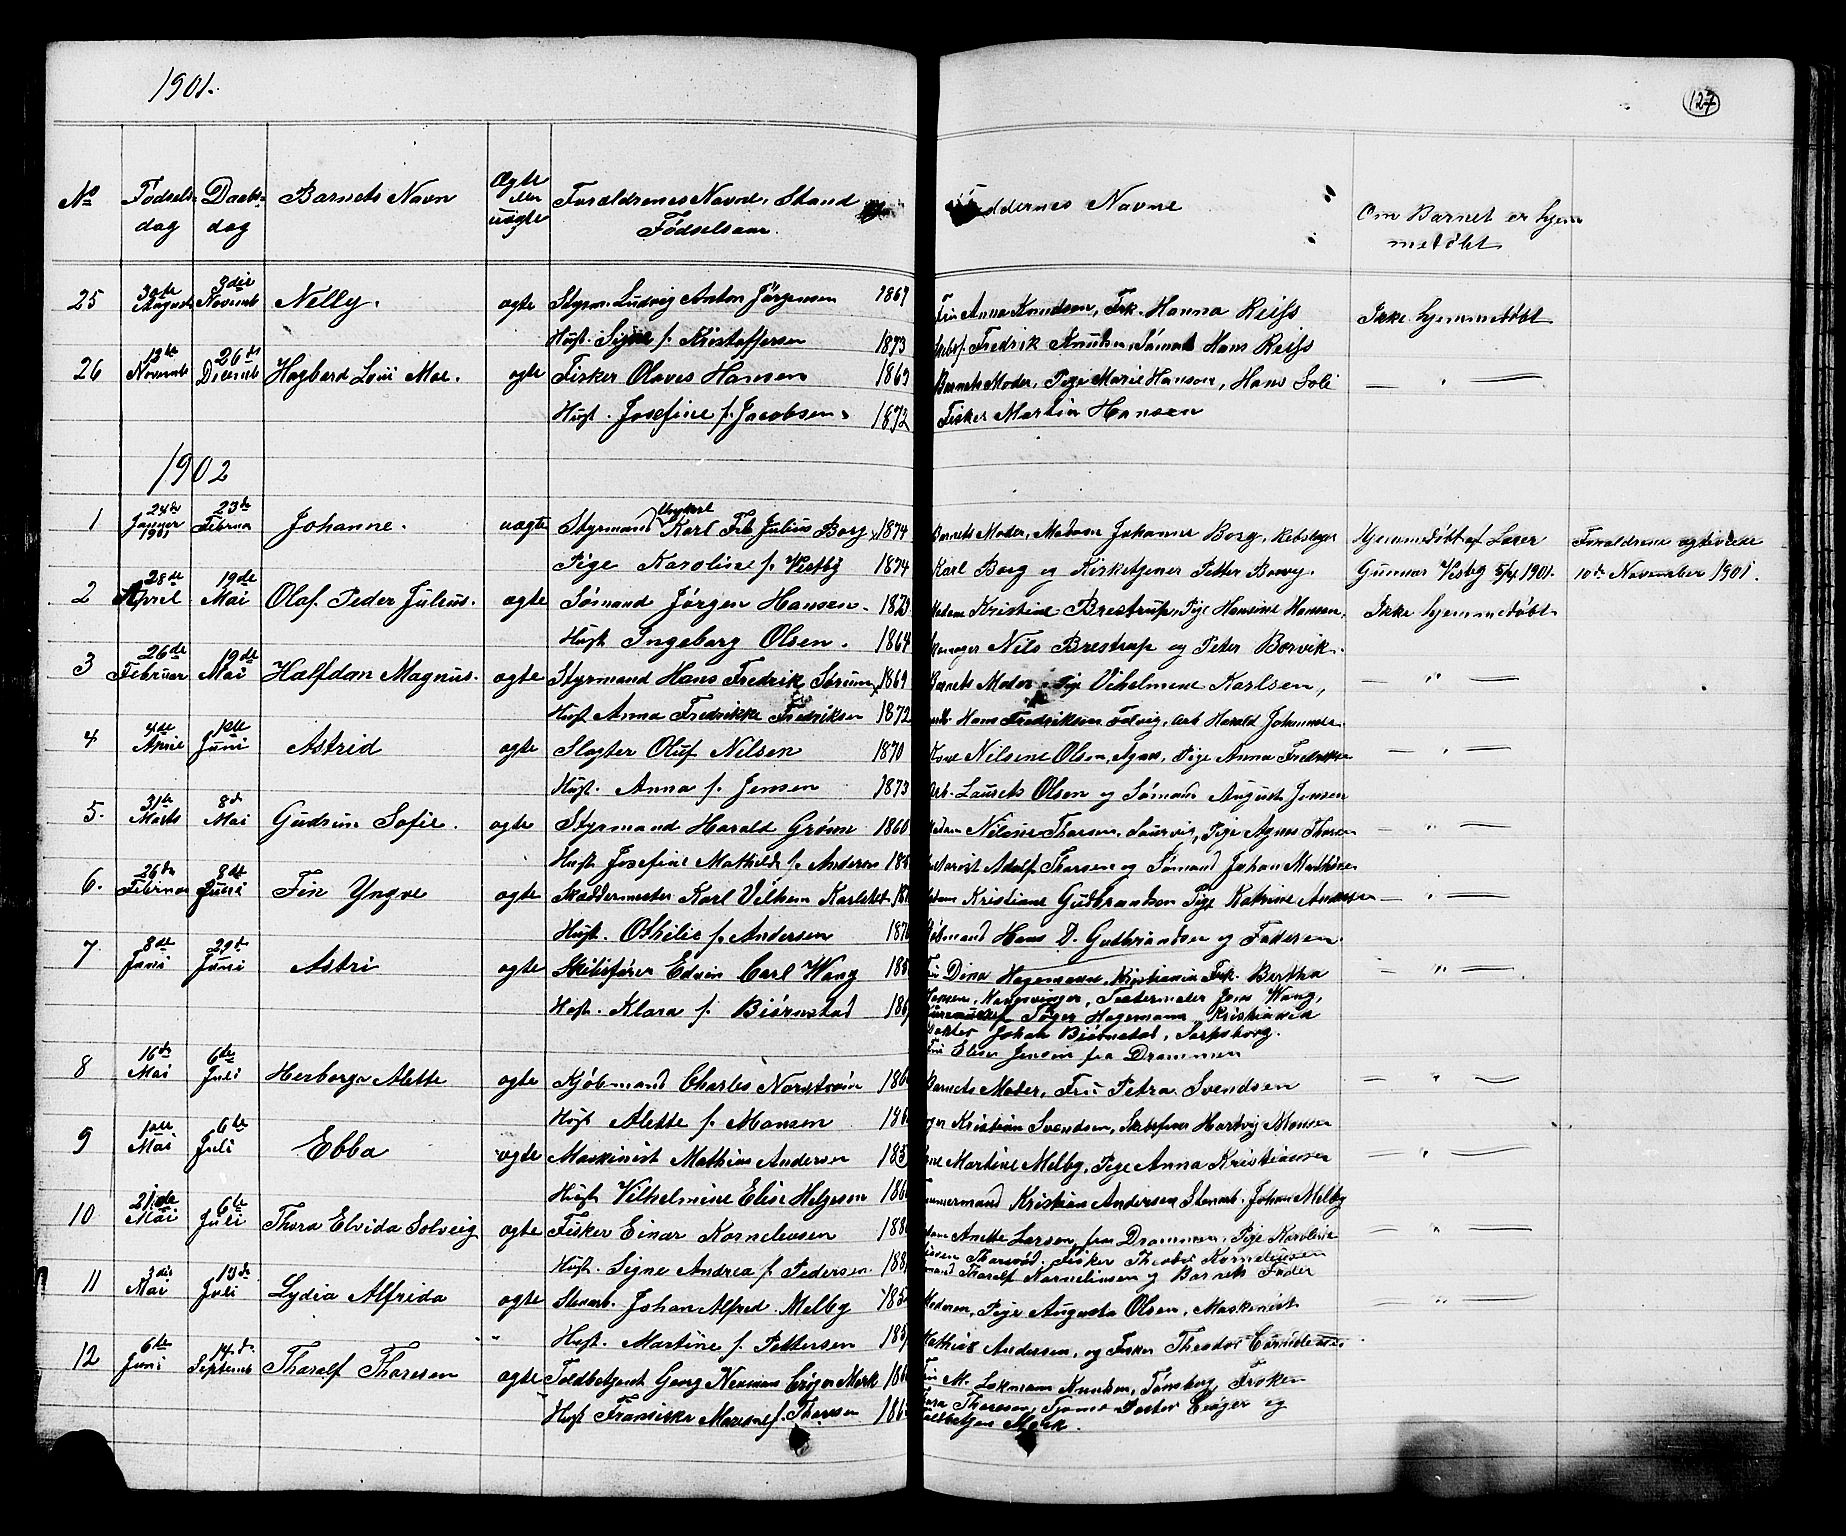 1901.
127
No
Fødsels-
dag
Daabs-
dag
Barnets Navn
Ægte
eller
uægte
Forældrenes Navne, Stand
Fødselsaar.
Faddernes Navne
Om Barnet er hjem
medøbt
25 30te August 3die Novemb Nelly. ægte Styrm. Ludvig Anton Jørgensen 1869 Fru Anna Knudsen, Frk. Hanna Reiss Ikke hjemmedøbt
Hust. Signe f. Kristoffersen 1873 Skibsf. Fredrik Knudsen, Sømand Hans Reiss
26 12te Novemb 26de Decemb Hagbard Loui Mae. ægte Fisker Olaves Hansen 1869 Barnets Moder, Pige Marie Hansen, Hans Soli — " —
Hust. Josefine f. Jacobsen. 1872 Fisker Martin Hansen
1902
1 24de Januar 1901 23de Februa Johanne. uægte Styrmand Karl Frb Julius Borg 1874 Barnets Moder, Madam Johanne Borg, Rebslager Hjemmedøbt af Lærer Forældrene ægteviede
Pige Karoline f. Vestby 1874 Karl Borg og Kirketjener Petter Borvy. Gunnar Visby 5/4 1901. 10de November 1901.
2 28de April 19de Mai Olaf Peder Julius. ægte Sømand Jørgen Hansen. 1873 Madam Kristine Brestrup, Pige Hansine Hansen, Ikke hjemmedøbt
Hust Ingeborg Olsen. 1864 Nils Brestrup og Peter Borvik.
3 26de Februar 19de Mai Halfdan Magnus. ægte Styrmand Hans Fredrik Sørum 1869 Barnets Moder, Pige Vilhelmine Karlsen, — " —
Hust Anna Fredrikke Fredriksen 1872 Hans Fredriksen Fadvig, Arb Harald Johannesen
4 4de April 1ste Juni Astrid ægte Slagter Oluf Nilsen 1870 Kone Nilsine Olsen, Agnes, Pige Anna Fredriksen — " —
Hust. Anna f. Jensen 1873 Arb. Laurits Olsen og Sømand August Jensen
5. 31te Marts 8d Mai Gudrun Sofie. ægte Styrmand Harald Grønn 1860 Madam Nilsine Thorsen, Laurvig, Pige Agnes Thorsen — " —
Hust. Josefine Mathilde f. Andersen Adolf Thorsen og Sømand Johan Mathisen
6. 26de Februar 8de Juni Fin Yngve ægte Skræddermester Karl Vilhem Karlstet Madam Kristiane Gudbrandsen Pige Katrine Andersen — " —
Hust. Othilie f. Andersen Kjøbmand Hans D. Gudbrandsen og Faderen
7 8de Juni 29de Juni Astri ægte Skibsfører Edvin Carl Wang Fru Dina Hagemann, Kristiania Frk. Bertha — " —
Hust. Klara f. Biørnstad Hansen, Kongsvinger, Teatermaler Jens Wang,
Tøger Hagemann Kristiania
Doktor Johan Biørnstad, Sarpsborg.
Fru Elise Jensen fra Drammen
8 16de Mai 6de Juli Herborga Alette ægte Kjøbmand Charles Nordstrøm Barnets Moder, Fru Petra Svendsen — " —
Hust Alette f. Monsen Kristian Svendsen, Skibsfører Hartvig Monsen
9 1ste Mai 6te Juli Ebba ægte Maskinist Mathias Andersen Kone Martine Melby, Pige Anna Kristiansen — " —
Hust Vilhelmine Elise Helgesen Tømmermand Kristian Andersen Stenarb. Johan Melby
10 21de Mai 6te Juli Thora Elvida Solveig ægte Fisker Einar Korneliusen Madam Anette Larsen, fra Drammen, Pige Karoline — " —
Hust. Signe Andrea f. Pedersen Fisker Theodor Korneliusen
Tharalf Korneliusen og Barnets Fader
11 3die Mai 13de Juli Lydia Alfrida ægte Stenarb. Johan Alfred Melby Moderen, Pige Augusta Olsen, Maskinist — " —
" " Hust. Martine f. Pettersen Mathias Andersen, og Fisker Theodor Corneliussen
12 6te Juni 14de Septemb Tharalf Thoresen ægte Toldbetjent Georg Neuman Crøger Mørk Fru M. Lokmann Knudsen, Tønsberg, Frøken
Hust Fransiska Marene f. Thoresen Thora Thoresen, Tjømø Pastor Crøger og
Toldbetjen Mørk.